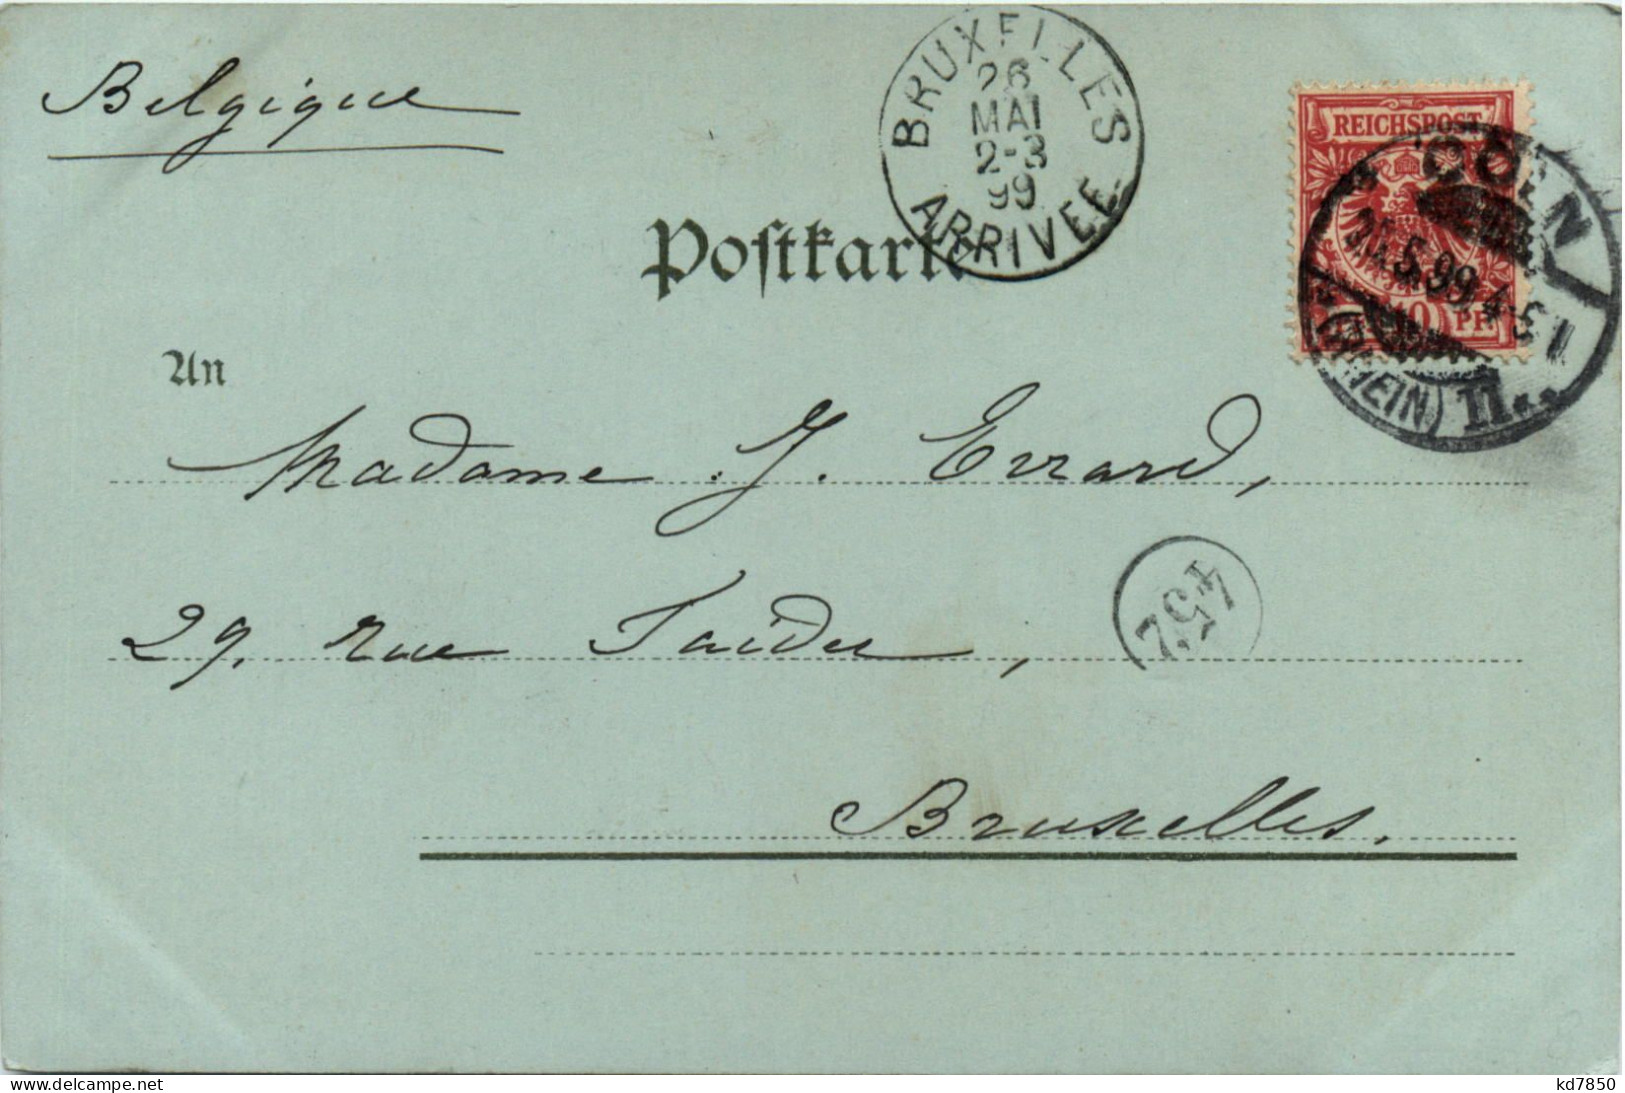 Belgique
BRUXELLES
26
MAI
2-3
99
ARRIVEE
REICHSPOST
10 PF
CÖLN
5.99.4-5
(RHEIN) 11..
Postkarte
An
Madame J. Errard,
29, rue Faider,
452
Bruxelles.
www.delcampe.net
kd7850